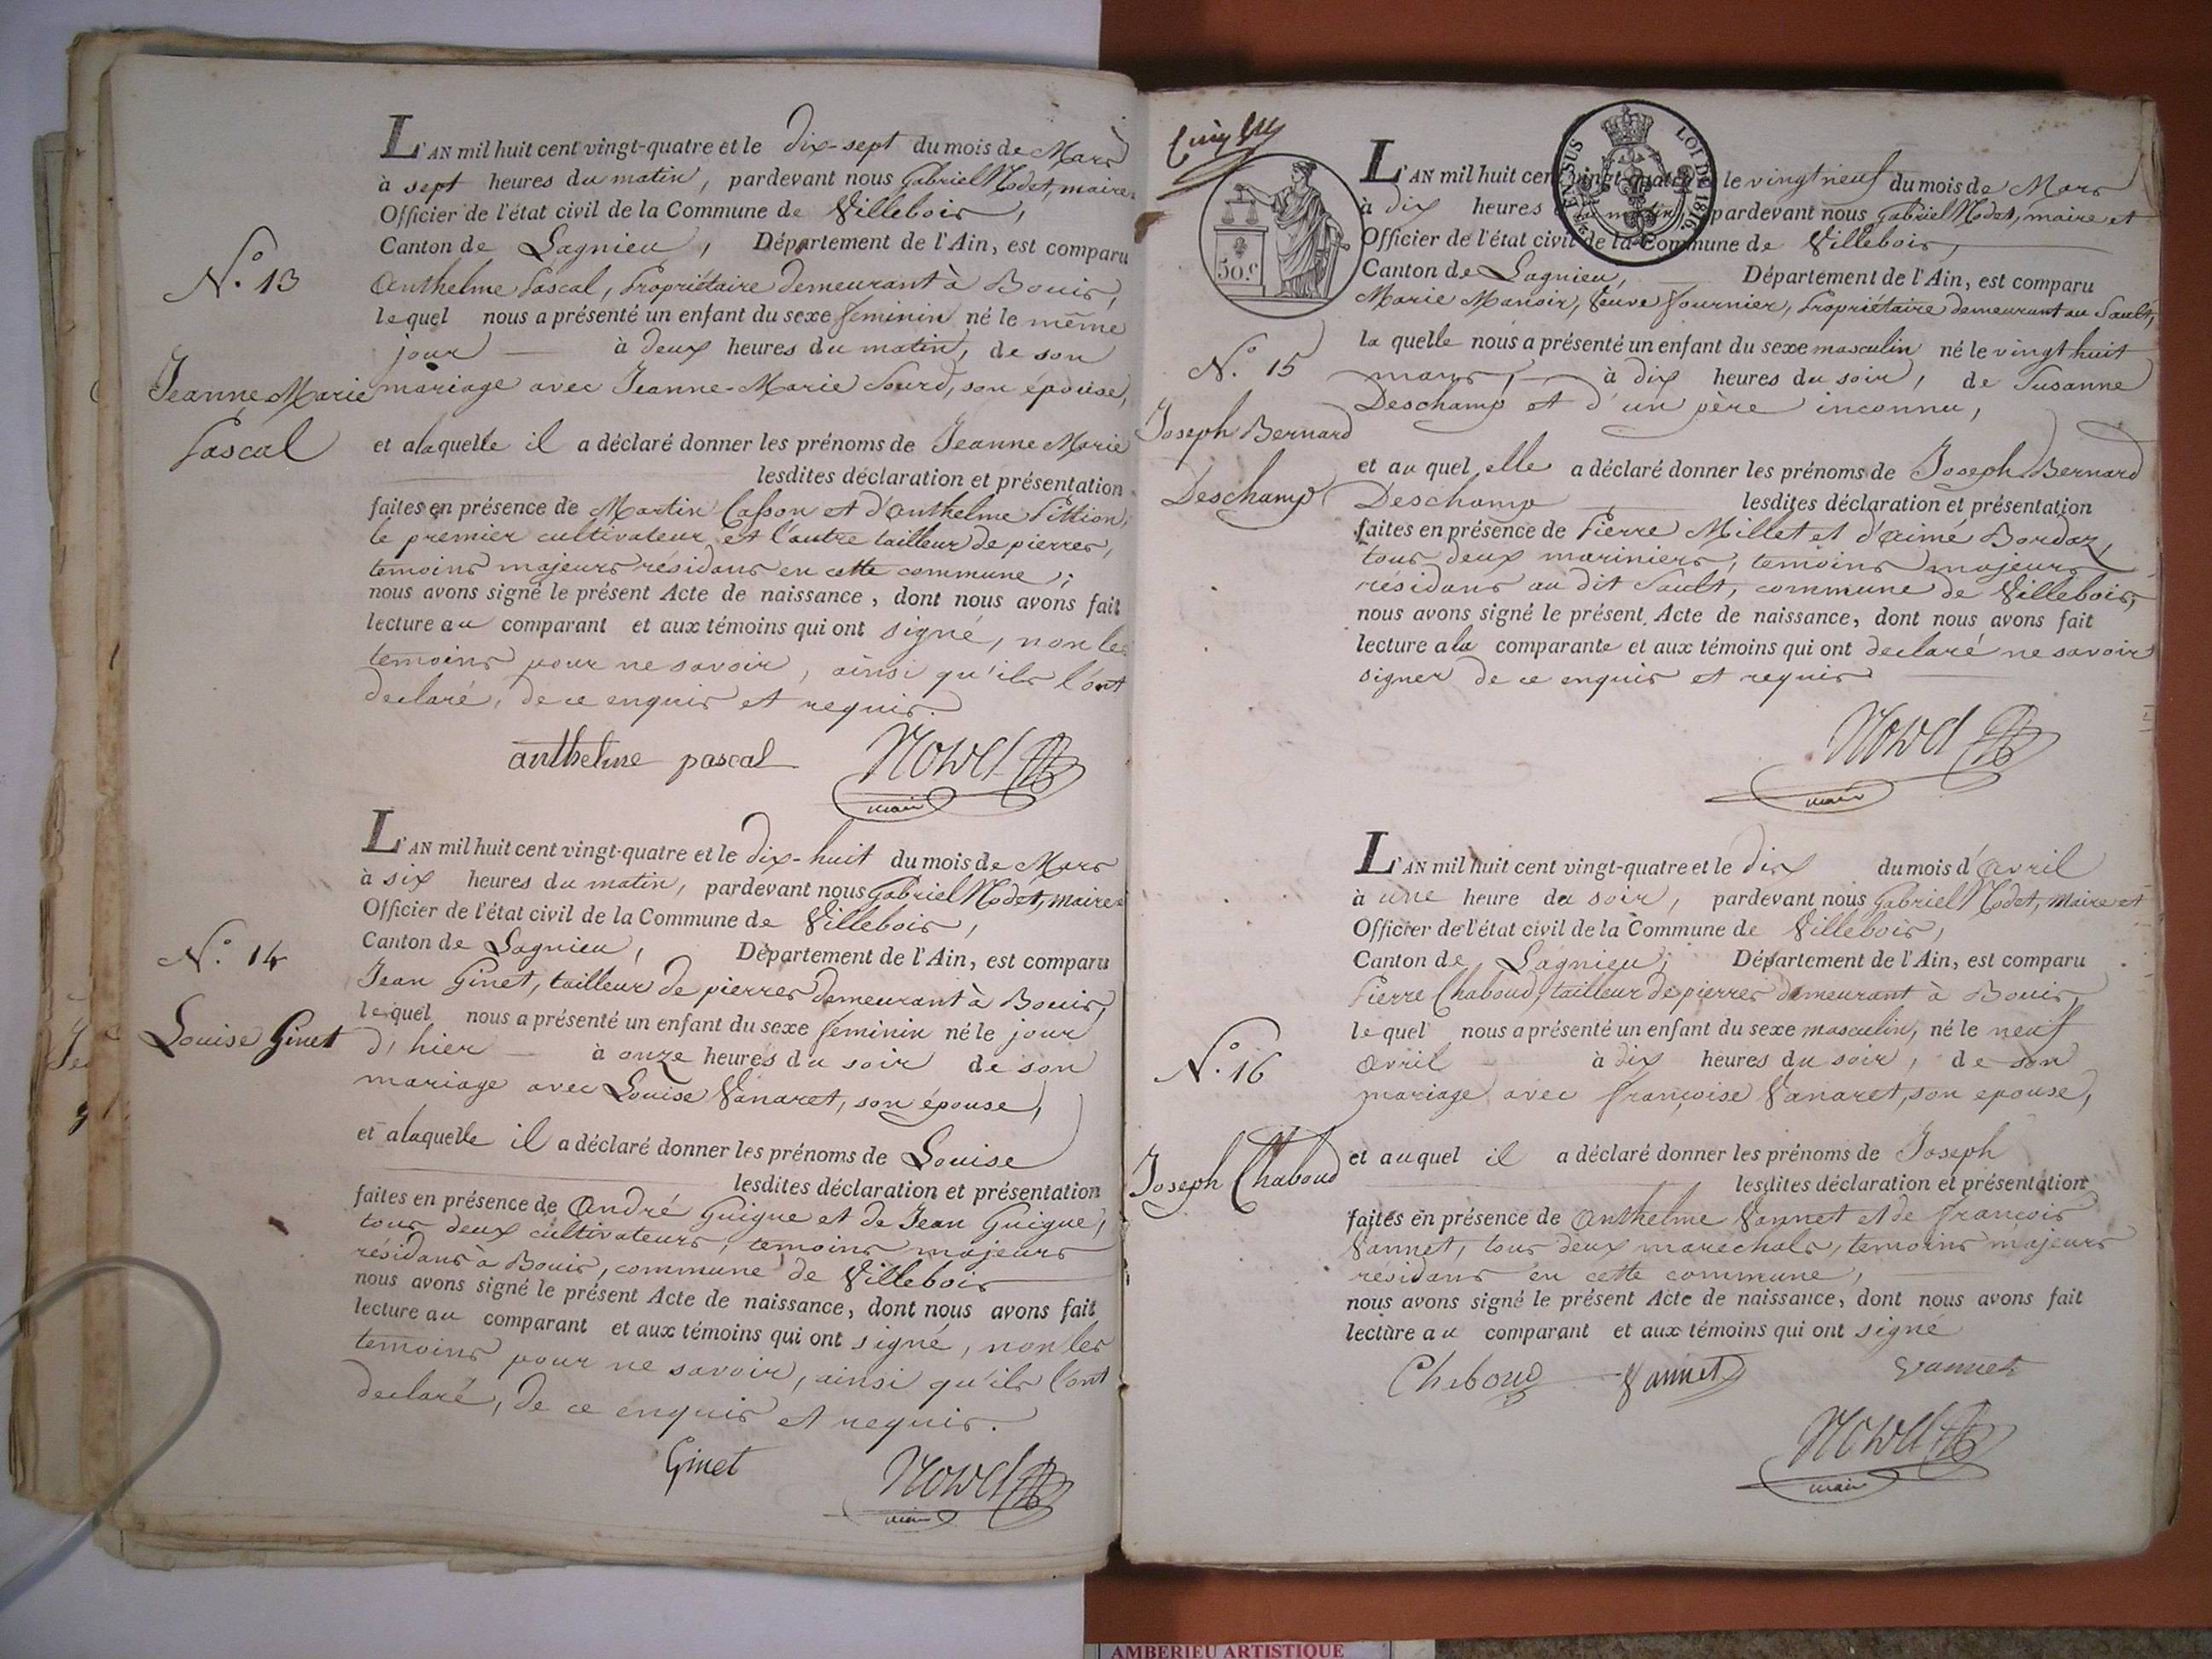 L'AN mil huit cent vingt-quatre et le dix-sept du mois de Mars
à sept heures du matin, pardevant nous Gabriel Nodet, maire
Officier de l'état civil de la Commune de Villebois,
Canton de Lagnieu, Département de l'Ain, est comparu
N.o 13
Anthelme Pascal, Propriétaire demeurant à Bouis,
lequel nous a présenté un enfant du sexe feminin né le même
jour à deux heures du matin, de son
Jeanne Marie
mariage avec Jeanne-Marie Sourd, son épouse,
Pascal
et a laquelle il a déclaré donner les prénoms de Jeanne Marie
lesdites déclaration et présentation
faites en présence de Martin Casson et d'Anthelme Pittion,
le premier cultivateur et l'autre tailleur de pierres,
temoins majeurs résidans en cette commune,
nous avons signé le présent Acte de naissance, dont nous avons fait
lecture au comparant et aux témoins qui ont signé, non les
temoins pour ne savoir, ainsi qu'ils l'ont
declaré, de ce enquis et requis.
anthelme pascal
maire
L'AN mil huit cent vingt-quatre et le dix-huit du mois de Mars
à six heures du matin, pardevant nous Gabriel Nodet, maire
Officier de l'état civil de la Commune de Villebois,
N.o 14
Canton de Lagnieu, Département de l'Ain, est comparu
Jean Ginet, tailleur de pierres demeurant à Bouis,
lequel nous a présenté un enfant du sexe féminin né le jour
Louise Ginet
d'hier à onze heures du soir de son
mariage avec Louise Vanaret, son épouse,
et a laquelle il a déclaré donner les prénoms de Louise
lesdites déclaration et présentation
faites en présence de André Guigue et de Jean Guigue,
tous deux cultivateurs, temoins majeurs
résidans à Bouis, commune de Villebois
nous avons signé le présent Acte de naissance, dont nous avons fait
lecture au comparant et aux témoins qui ont signé, non les
temoins pour ne savoir, ainsi qu'ils l'ont
declaré, de ce enquis et requis.
Ginet
maire
LOI DE 1816
50.c
L'AN mil huit cent vingt-quatre et le vingt neuf du mois de Mars
à dix heures du matin, pardevant nous Gabriel Nodet, maire et
Officier de l'état civil de la Commune de Villebois,
Canton de Lagnieu, Département de l'Ain, est comparu
Marie Manoir, Veuve Fournier, Propriétaire demeurant au Sault,
la quelle nous a présenté un enfant du sexe masculin né le vingt huit
N.o 15
mars, à dix heures du soir, de Susanne
Deschamp et d'un père inconnu,
Joseph Bernard
Deschamp
et au quel elle a déclaré donner les prénoms de Joseph Bernard
Deschamp lesdites déclaration et présentation
faites en présence de Pierre Millet et d'Aimé Bordaz,
tous deux mariniers, temoins majeurs
résidans au dit Sault, commune de Villebois,
nous avons signé le présent Acte de naissance, dont nous avons fait
lecture a la comparante et aux témoins qui ont declaré ne savoir
signer de ce enquis et requis
maire
L'AN mil huit cent vingt-quatre et le dix du mois d'Avril
à une heure du soir, pardevant nous Gabriel Nodet, maire et
Officier de l'état civil de la Commune de Villebois,
Canton de Lagnieu, Département de l'Ain, est comparu
Pierre Chaboud, tailleur de pierres demeurant à Bouis,
lequel nous a présenté un enfant du sexe masculin, né le neuf
N.o 16
Avril à dix heures du soir, de son
mariage avec Françoise Vanaret, son epouse,
Joseph Chaboud
et auquel il a déclaré donner les prénoms de Joseph
lesdites déclaration et présentation
faites en présence de Anthelme Vannet et de François
Vannet, tous deux maréchals, temoins majeurs
résidans en cette commune,
nous avons signé le présent Acte de naissance, dont nous avons fait
lecture au comparant et aux témoins qui ont signé
Chaboud Vannet Vannet
maire
AMBERIEU ARTISTIQUE